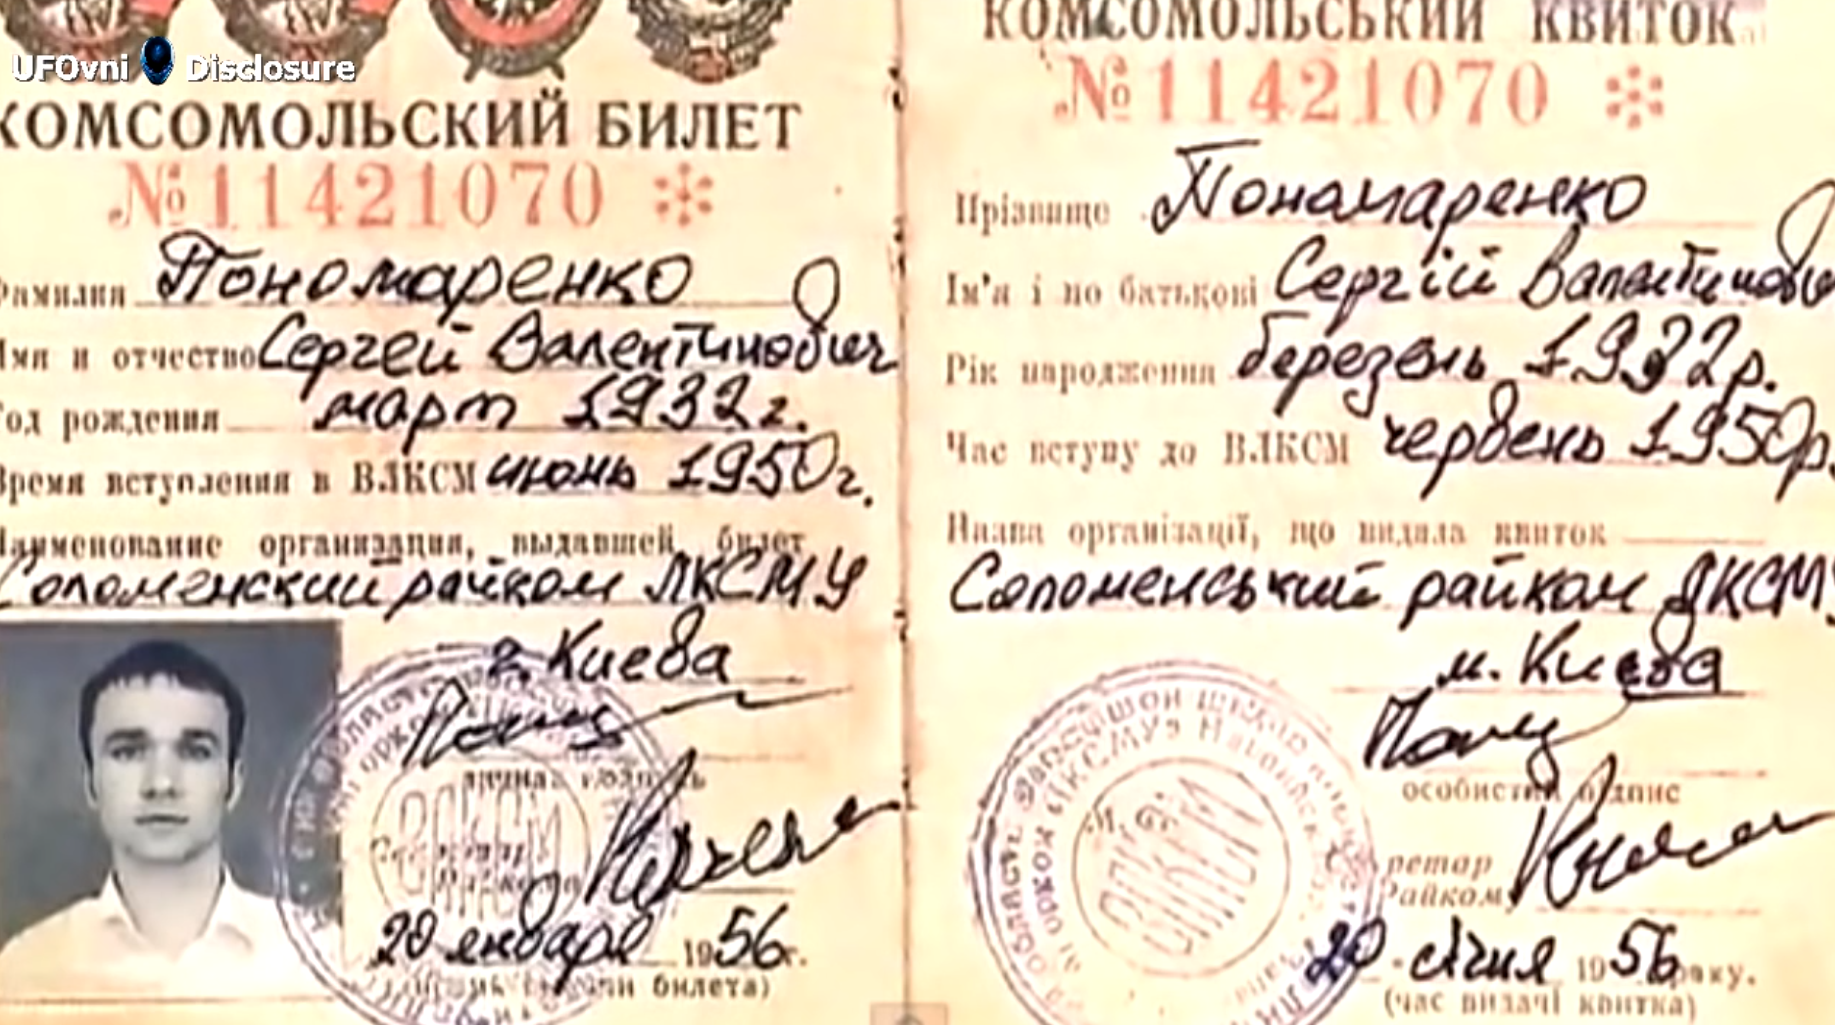 UFOvni Disclosure
КОМСОМОЛЬСКИЙ БИЛЕТ
№11421070
Фамилия Пономаренко
Имя и отчество Сергей Валентинович
Год рождения март 1932 г.
Время вступления в ВЛКСМ июнь 1950 г.
Наименование организации, выдавшей билет
Соломенский райком ЛКСМУ
г. Киева
личная подпись
20 января 1956 г.
билета)
КОМСОМОЛЬСЬКИЙ КВИТОК
№11421070
Прізвище Пономаренко
Ім'я і по батькові Сергій Валентинович
Рік народження березень 1932 р.
Час вступу до ВЛКСМ червень 1950 р.
Назва організації, що видала квиток
Соломенський райком ЛКСМУ
м. Києва
особистий підпис
ретар
Райком
20 січня 1956 року.
(час видачі квитка)